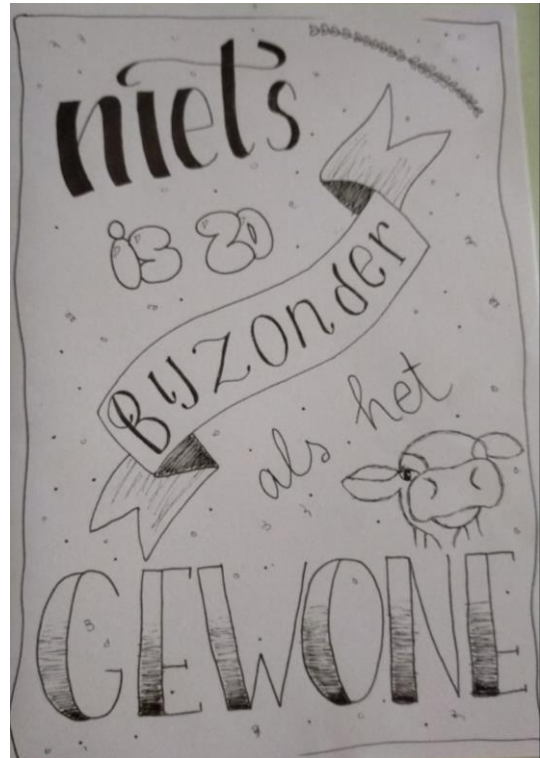 niets
is zo
Bijzonder
als het
GEWONE